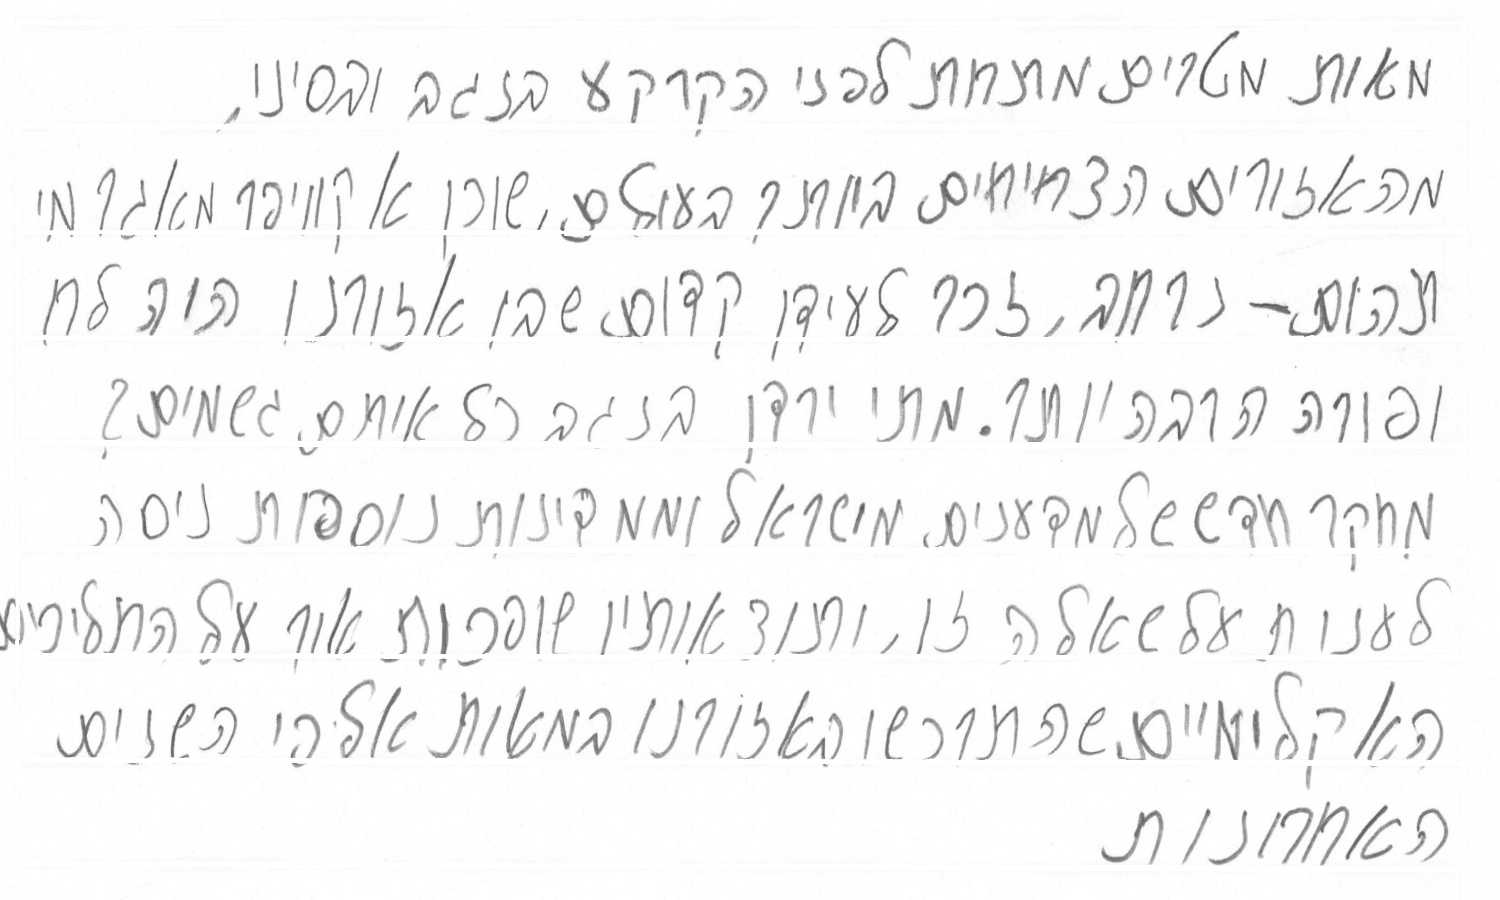 מאות מטרים מתחת לפני הקרקע בנגב ובסיני,
מהאזורים הצחיחים ביותר בעולם, שוכן אקוויפר מאגר מי
תהום – נרחב, זכר לעידן קדום שבו אזורנו היה לח
ופורה הרבה יותר. מתי ירדו בנגב כל אותם גשמים?
מחקר חדש של מדענים מישראל וממדינות נוספות ניסה
לענות על שאלה זו, ותוך אותיו שופכות אור על התליכים
האקלימיים שהתרכשו באזורנו במאות אלפי השנים
האחרונות